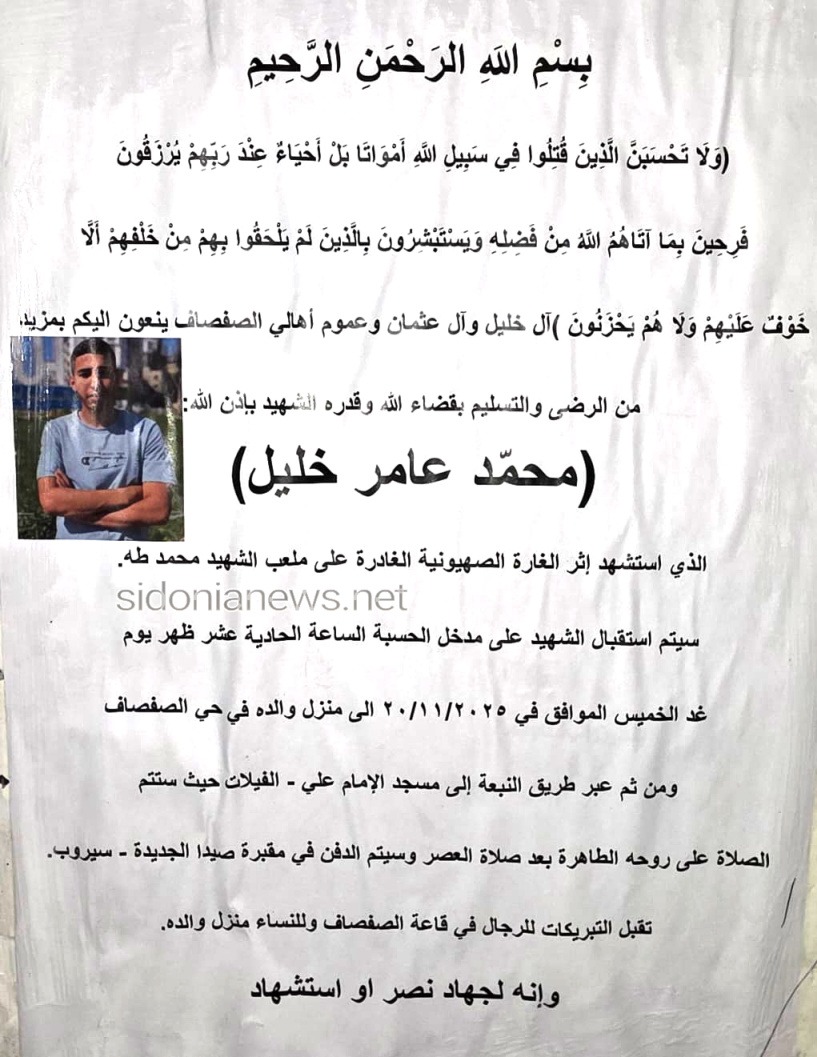 بِسْمِ اللهِ الرَحْمَنِ الرَّحِيمِ
(وَلَا تَحْسَبَنَّ الَّذِينَ قُتِلُوا فِي سَبِيلِ اللَّهِ أَمْوَاتَا بَلْ أَحْيَاءٌ عِنْدَ رَبِّهِمْ يُرْزَقُونَ
فَرِحِينَ بِمَا آتَاهُمُ اللَّهُ مِنْ فَضْلِهِ وَيَسْتَبْشِرُونَ بِالَّذِينَ لَمْ يَلْحَقُوا بِهِمْ مِنْ خَلْفِهِمْ أَلَّا
خَوْفٌ عَلَيْهِمْ وَلَا هُمْ يَحْزَنُونَ )آل خليل وآل عثمان وعموم أهالي الصفصاف ينعون اليكم بمزيد
من الرضى والتسليم بقضاء الله وقدره الشهيد بإذن الله:
(محمّد عامر خليل)
الذي استشهد إثر الغارة الصهيونية الغادرة على ملعب الشهيد محمد طه.
sidonianews.net
سيتم استقبال الشهيد على مدخل الحسبة الساعة الحادية عشر ظهر يوم
غد الخميس الموافق في ٢٠/١١/٢٠٢٥ الى منزل والده في حي الصفصاف
ومن ثم عبر طريق النبعة إلى مسجد الإمام علي - الفيلات حيث ستتم
الصلاة على روحه الطاهرة بعد صلاة العصر وسيتم الدفن في مقبرة صيدا الجديدة - سيروب.
تقبل التبريكات للرجال في قاعة الصفصاف وللنساء منزل والده.
وإنه لجهاد نصر او استشهاد